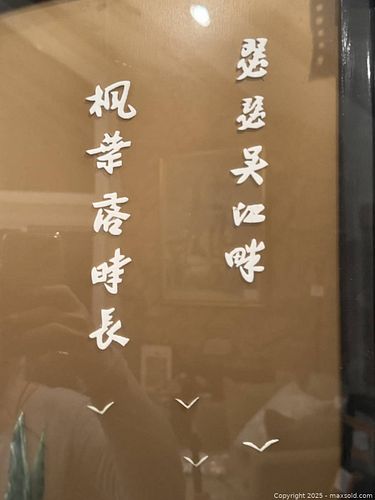 瑟瑟吴江畔
枫葉落時長
Copyright 2025 - maxsold.com